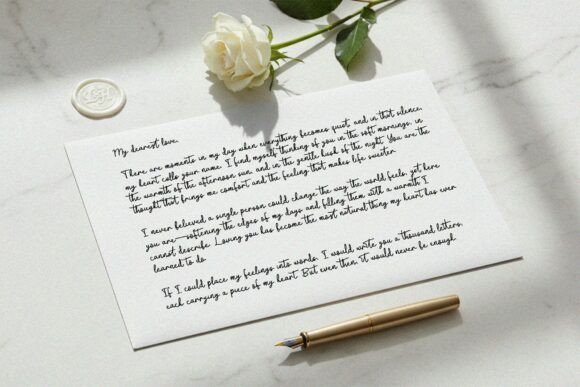 My dearest love,
There are moments in my day when everything becomes quiet, and in that silence,
my heart calls your name. I find myself thinking of you in the soft mornings, in
the warmth of the afternoon sun, and in the gentle hush of the night. You are the
thought that brings me comfort and the feeling that makes life sweeter.
I never believed a single person could change the way the world feels, yet here
you are—softening the edges of my days and filling them with a warmth I
cannot describe. Loving you has become the most natural thing my heart has ever
learned to do.
If I could place my feelings into words, I would write you a thousand letters,
each carrying a piece of my heart. But even then, It would never be enough.